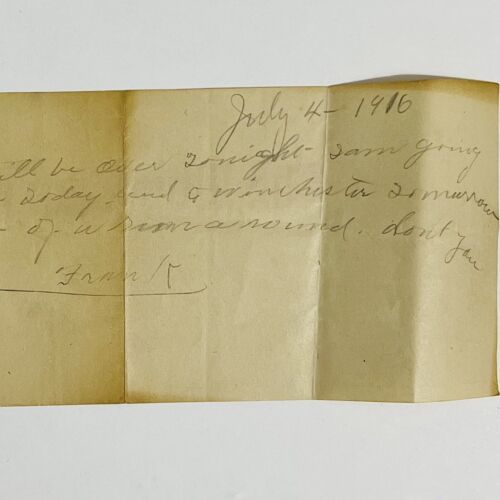 July 4 - 1916
ill be over tonight I am going
today and to Winchester tomorrow
of a run around. dont you
Frank